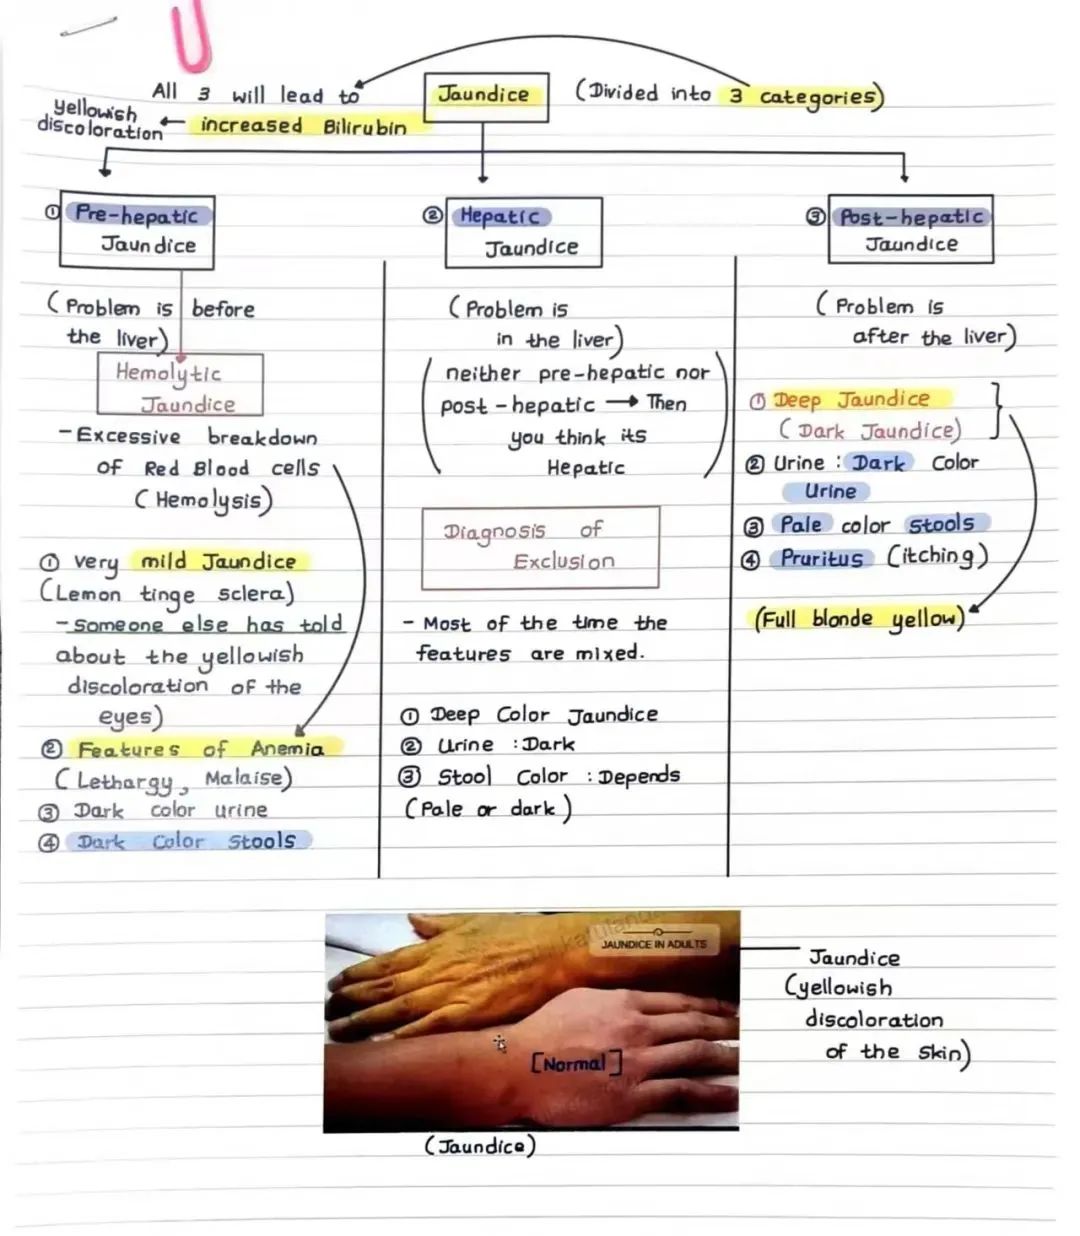 All 3 will lead to
Jaundice
(Divided into 3 categories)
yellowish
discoloration
increased Bilirubin
① Pre-hepatic
Jaundice
(Problem is before
the liver)
Hemolytic
Jaundice
-Excessive breakdown
of Red Blood cells
(Hemolysis)
① very mild Jaundice
(Lemon tinge sclera)
-someone else has told
about the yellowish
discoloration of the
eyes)
② Features of Anemia
(Lethargy, Malaise)
③ Dark color urine
④ Dark Color Stools
② Hepatic
Jaundice
(Problem is
in the liver)
(neither pre-hepatic nor
post-hepatic → Then
you think its
Hepatic)
Diagnosis of
Exclusion
- Most of the time the
features are mixed.
① Deep Color Jaundice
② Urine : Dark
③ Stool Color : Depends
(Pale or dark)
③ Post-hepatic
Jaundice
(Problem is
after the liver)
① Deep Jaundice
(Dark Jaundice)
② Urine : Dark Color
Urine
③ Pale color stools
④ Pruritus (itching)
(Full blonde yellow)
JAUNDICE IN ADULTS
[Normal]
(Jaundice)
Jaundice
(yellowish
discoloration
of the skin)